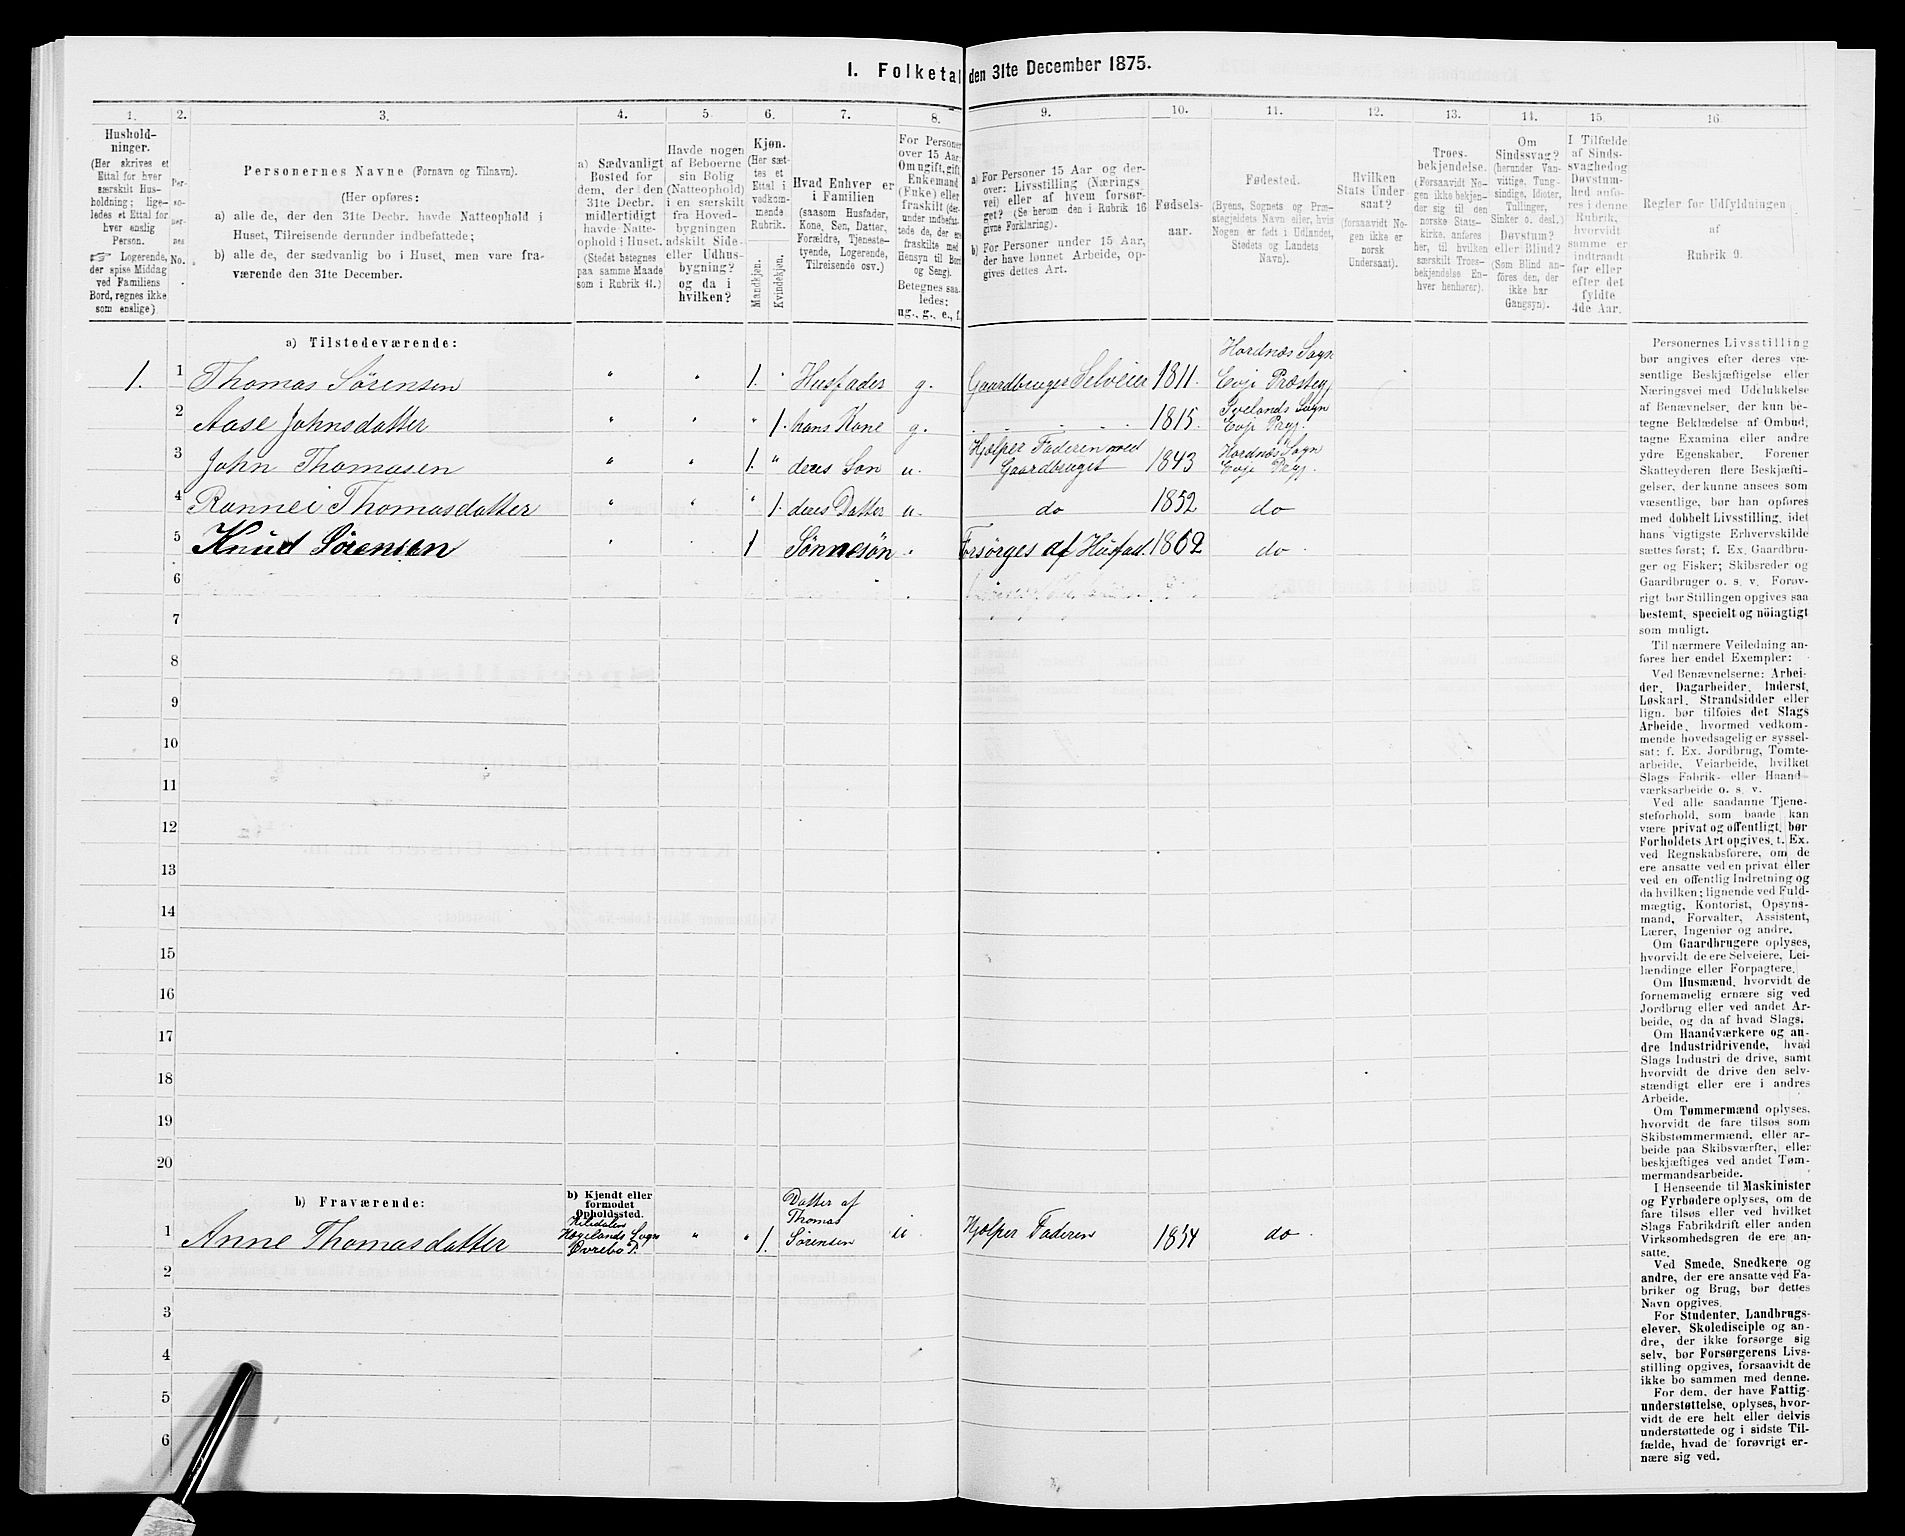 I. Folketal den 31te December 1875.
1.
2.
3.
4.
5.
6.
7.
8.
9.
10.
11.
12.
13.
14.
15.
16.
Hushold-
ninger.
(Her skrives et
Ettal for hver
særskilt Hus-
holdning; lige-
ledes et Ettal for
hver enslig
Person.
☞ Logerende,
der spise Middag
ved Familiens
Bord, regnes ikke
som enslige)
Per-
so-
ner-
nes
No.
Personernes Navne (Fornavn og Tilnavn).
(Her opføres:
a) alle de, der den 31te Decbr. havde Natteophold i
Huset, Tilreisende derunder indbefattede;
b) alle de, der sædvanlig bo i Huset, men vare fra-
værende den 31te December.
a) Sædvanligt
Bosted for
dem, der den
31te Decbr.
midlertidigt
havde Natte-
ophold i Huset.
(Stedet betegnes
paa samme Maade
som i Rubrik 11.)
Havde nogen
af Beboerne
sin Bolig
(Natteophold)
i en særskilt
fra Hoved-
bygningen
adskilt Side-
eller Udhus-
bygning?
og da i
hvilken?
Kjøn.
(Her sæt-
tes et
Ettal i
vedkom-
mende
Rubrik.
Mandkjøn.
Kvindekjøn.
Hvad Enhver er
i Familien
(saasom Husfader,
Kone, Søn, Datter,
Forældre, Tjeneste-
tyende, Logerende,
Tilreisende osv.)
For Personer
over 15 Aar:
Om ugift, gift,
Enkemand
(Enke) eller
fraskilt (der-
under indbefat-
tede de, der ere
fraskilte med
Hensyn til Bord
og Seng).
Betegnes saa-
ledes:
ug., g., e., f.
a) For Personer 15 Aar og der-
over: Livsstilling (Nærings
vei) eller af hvem forsør-
get? (Se herom den i Rubrik 16
givne Forklaring).
b) For Personer under 15 Aar,
der have lønnet Arbeide, op-
gives dettes Art.
Fødsels-
aar.
Fødested.
(Byens, Sognets og Præ-
stegjeldets Navn eller, hvis
Nogen er født i Udlandet,
Stedets og Landets
Navn).
Hvilken
Stats Under-
saat?
(forsaavidt No-
gen ikke er
norsk
Undersaat).
Troes-
bekjendelse.
(Forsaavidt No-
gen ikke bekjen-
der sig til den
norske Stats-
kirke, anføres
her, til hvilken
særskilt Troes-
bekjendelse En-
hver henhører).
Om
Sindssvag?
(herunder Van-
vittige, Tung-
sindige, Idioter,
Tullinger,
Sinker o. desl.)
Døvstum?
eller Blind?
(Som Blind an-
føres den, der
ikke har
Gangsyn).
I Tilfælde
af Sinds-
svaghed og
Døvstum-
hed anfø-
res i denne
Rubrik,
hvorvidt
samme er
indtraadt
før eller
efter det
fyldte
4de Aar.
Regler for Udfyldningen
af
Rubrik 9.
a) Tilstedeværende:
1. 1 Thomas Sørensen " " 1. Husfader g. Gaardbruger Selveier 1811. Hordnæs Sogn Evje Præsteg
2 Aase Johnsdatter " " " 1. hans Kone g. 1815. Evje Prgj.
3 John Thomasen " " 1. " deres Søn u. Hjælper Faderen med Gaardbruget 1843 Hordnæs Sogn Evje Prgj.
4 Rannei Thomasdatter " " " 1. deres Datter u. do 1852 do
5 Knud Sørensen 1 Sønnesøn Forsørges af Husfad. 1862 do
6
7
8
9
10
11
12
13
14
15
16
17
18
19
20
b) Fraværende:
b) Kjendt eller
formodet
Opholdssted.
1 Anne Thomasdatter Hægelands Sogn Øvrebø P. " " 1. Datter af Thomas Sørensen Hjælper Faderen 1854 do
2
3
4
5
6
Personernes Livsstilling
bør angives efter deres væ-
sentlige Beskjæftigelse eller
Næringsvei med Udelukkelse
af Benævnelser, der kun be-
tegne Beklædelse af Ombud,
tagne Examina eller andre
ydre Egenskaber. Forener
Skatteyderen flere Beskjæfti-
gelser, der kunne ansees som
væsentlige, bør han opføres
med dobbelt Livsstilling, idet
hans vigtigste Erhvervskilde
sættes først; f. Ex. Gaardbru-
ger og Fisker; Skibsreder og
Gaardbruger o. s. v. Forøv-
rigt bør Stillingen opgives saa
bestemt, specielt og nöiagtigt
som muligt.
Til nærmere Veiledning an-
føres her endel Exempler:
Ved Benævnelserne: Arbei-
der, Dagarbeider, Inderst,
Løskarl, Strandsidder eller
lign. bør tilføies det Slags
Arbeide, hvormed vedkom-
mende hovedsagelig er syssel-
sat; f. Ex. Jordbrug, Tomte-
arbeide, Veiarbeide, hvilket
Slags Fabrik- eller Haand-
værksarbeide o. s. v.
Ved alle saadanne Tjene-
steforhold, som baade kan
være privat og offentligt, bør
Forholdets Art opgives, t. Ex.
ved Regnskabsførere, om de
ere ansatte ved en privat eller
ved en offentlig Indretning og
da hvilken; lignende ved Fuld-
mægtig, Kontorist, Opsyns-
mand, Forvalter, Assistent,
Lærer, Ingeniør og andre.
Om Gaardbrugere oplyses,
hvorvidt de ere Selveiere, Lei-
lændinge eller Forpagtere.
Om Husmænd, hvorvidt de
fornemmelig ernære sig ved
Jordbrug eller ved andet Ar-
beide, og da af hvad Slags.
Om Haandværkere og an-
dre Industridrivende, hvad
Slags Industri de drive, samt
hvorvidt de drive den selv-
stændigt eller ere i andres
Arbeide.
Om Tømmermænd oplyses,
hvorvidt de fare tilsøs som
Skibstømmermænd, eller ar-
beide paa Skibsværfter, eller
beskjæftiges ved andet Tøm-
mermandsarbeide.
I Henseende til Maskinister
og Fyrbødere oplyses, om de
fare tilsøs eller ved hvilket
Slags Fabrikdrift eller anden
Virksomhedsgren de ere an-
satte.
Ved Smede, Snedkere og
andre, der ere ansatte ved Fa-
briker og Brug, bør dettes
Navn opgives.
For Studenter, Landbrugs-
elever, Skoledisciple og an-
dre, der ikke forsørge sig
selv, bør Forsørgerens Livs-
stilling opgives, forsaavidt de
ikke bo sammen med denne.
For dem, der have Fattig-
understøttelse, oplyses, hvor-
vidt de ere helt eller delvis
understøttede og i sidste Til-
fælde, hvad de forøvrigt er-
nære sig ved.